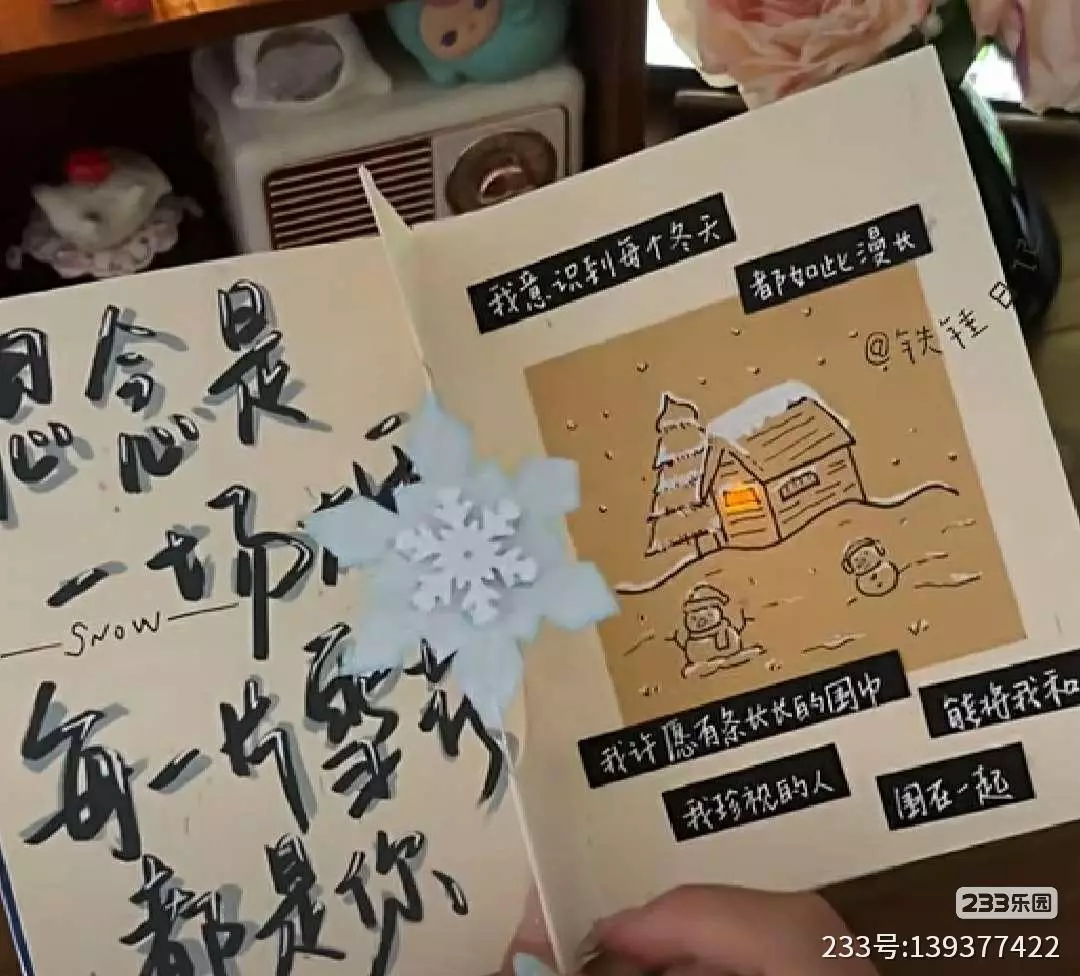 思念是
一场
SNOW
每一片雪花
都是你
我意识到每个冬天
都如此漫长
@铁鞋
我许愿有条长长的围巾
能将我和
我珍视的人
围在一起
233乐园
233号:139377422